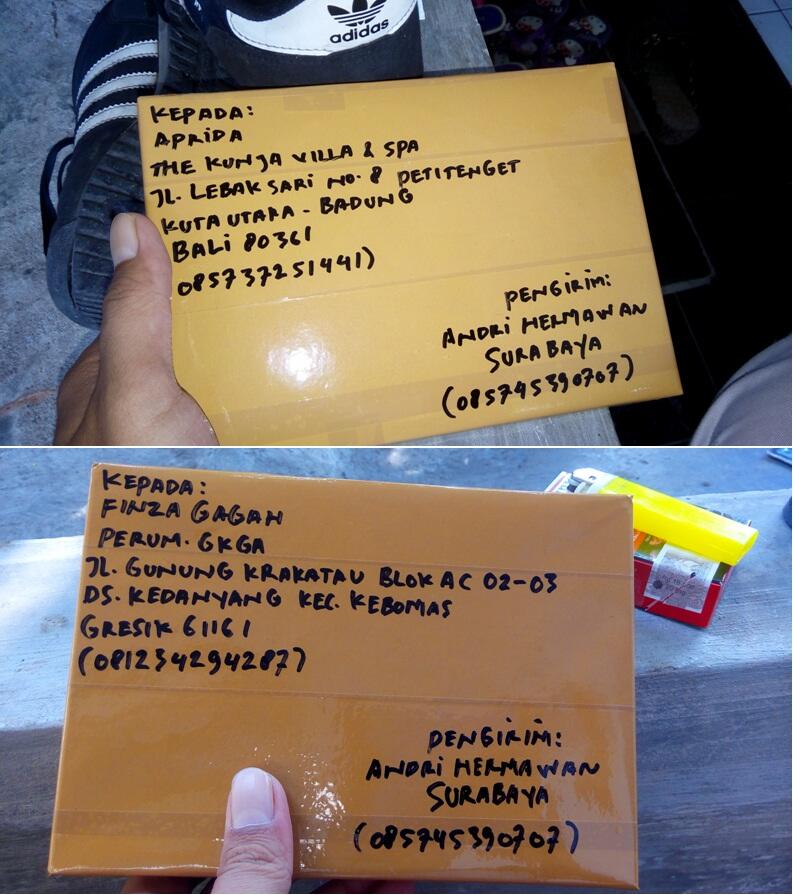 adidas
KEPADA:
APRIDA
THE KUNJA VILLA & SPA
JL. LEBAK SARI NO. 8 PETITENGET
KUTA UTARA - BADUNG
BALI 80361
085737251441)
PENGIRIM:
ANDRI HERMAWAN
SURABAYA
(085745390707)
KEPADA:
FINZA GAGAH
PERUM. GKGA
JL. GUNUNG KRAKATAU BLOK AC 02-03
DS. KEDANYANG KEC. KEBOMAS
GRESIK 61161
(081234294287)
PENGIRIM:
ANDRI HERMAWAN
SURABAYA
(085745390707)